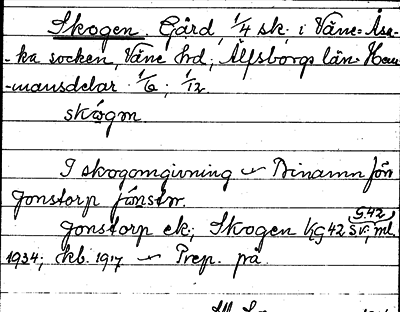 Skogen. Gård, 1/4 sk. i Väne-Åsa-
-ka socken, Väne hrd, Älfsborgs län. Hem-
-mansdelar 1/6; 1/12.
skógɷn.
I skogomgivning – Binamn från
Jonstorp
G.42
Jonstorp ek; Skogen kg 42 Sv; ml.
1934; kb. 1917 – Prep. på